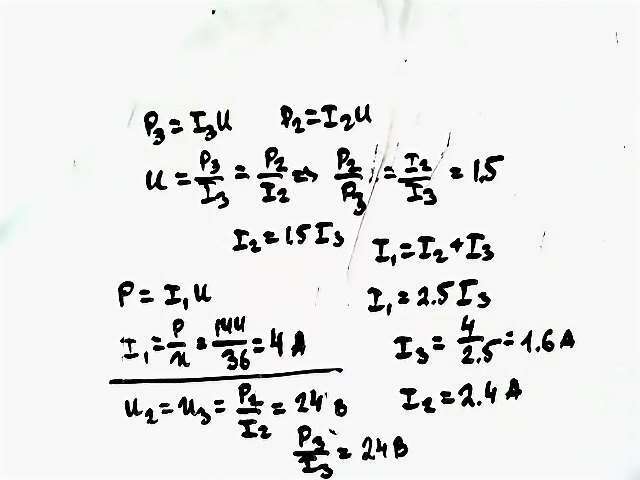 P₃ = I₃U P₂ = I₂U
U = P₃/I₃ = P₂/I₂ => P₂/P₃ = I₂/I₃ = 1.5
I₂ = 1.5 I₃
I₁ = I₂ + I₃
P = I₁U
I₁ = 2.5 I₃
I₁ = P/U = 144/36 = 4 A
I₃ = 4/2.5 = 1.6 A
U₂ = U₃ = P₂/I₂ = 24 В
I₂ = 2.4 A
P₃/I₃ = 24 В